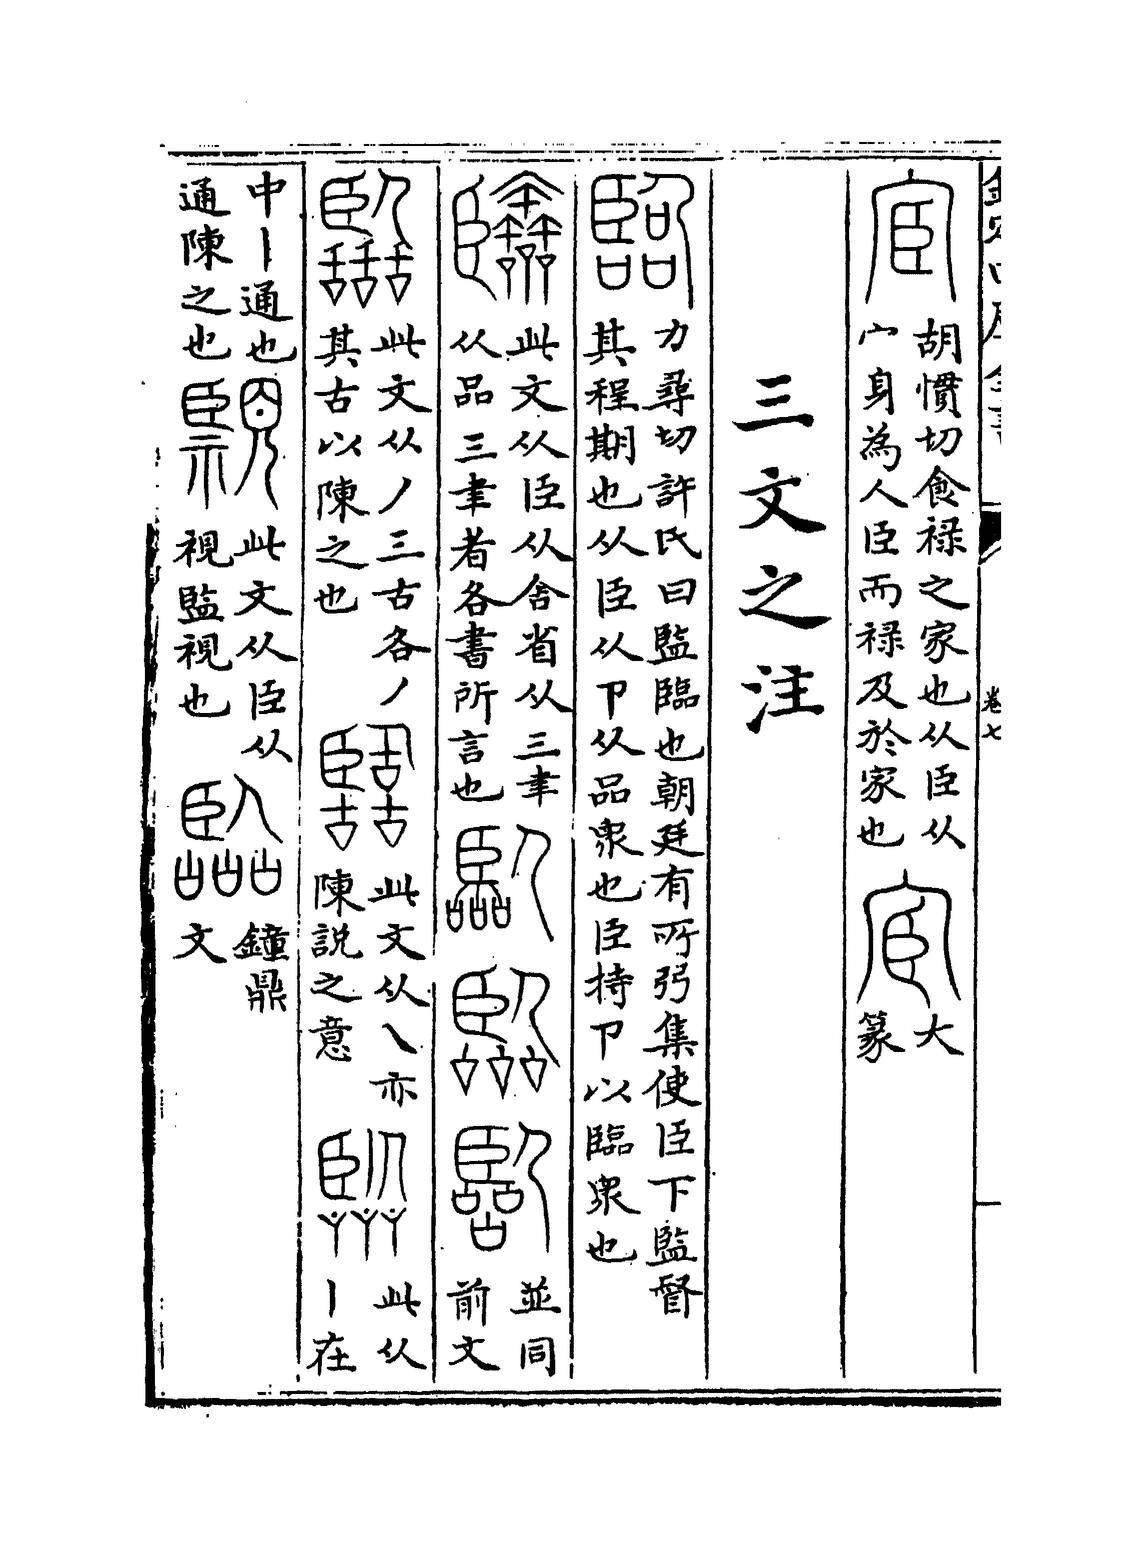 欽定四庫全書
卷七
宦 胡慣切食祿之家也从臣从
宀身為人臣而祿及於家也 宦 大
篆
三文之注
臨 力尋切許氏曰監臨也朝廷有所弜集使臣下監督
其程期也从臣从卪从品衆也臣持卪以臨衆也
此文从臣从舍省从三聿
从品三聿者各書所言也
並同
前文
此文从丿三古各丿
其古以陳之也
此文从乀亦
陳說之意
此从
丨在
中丨通也
通陳之也
此文从臣从
視監視也
鐘鼎
文